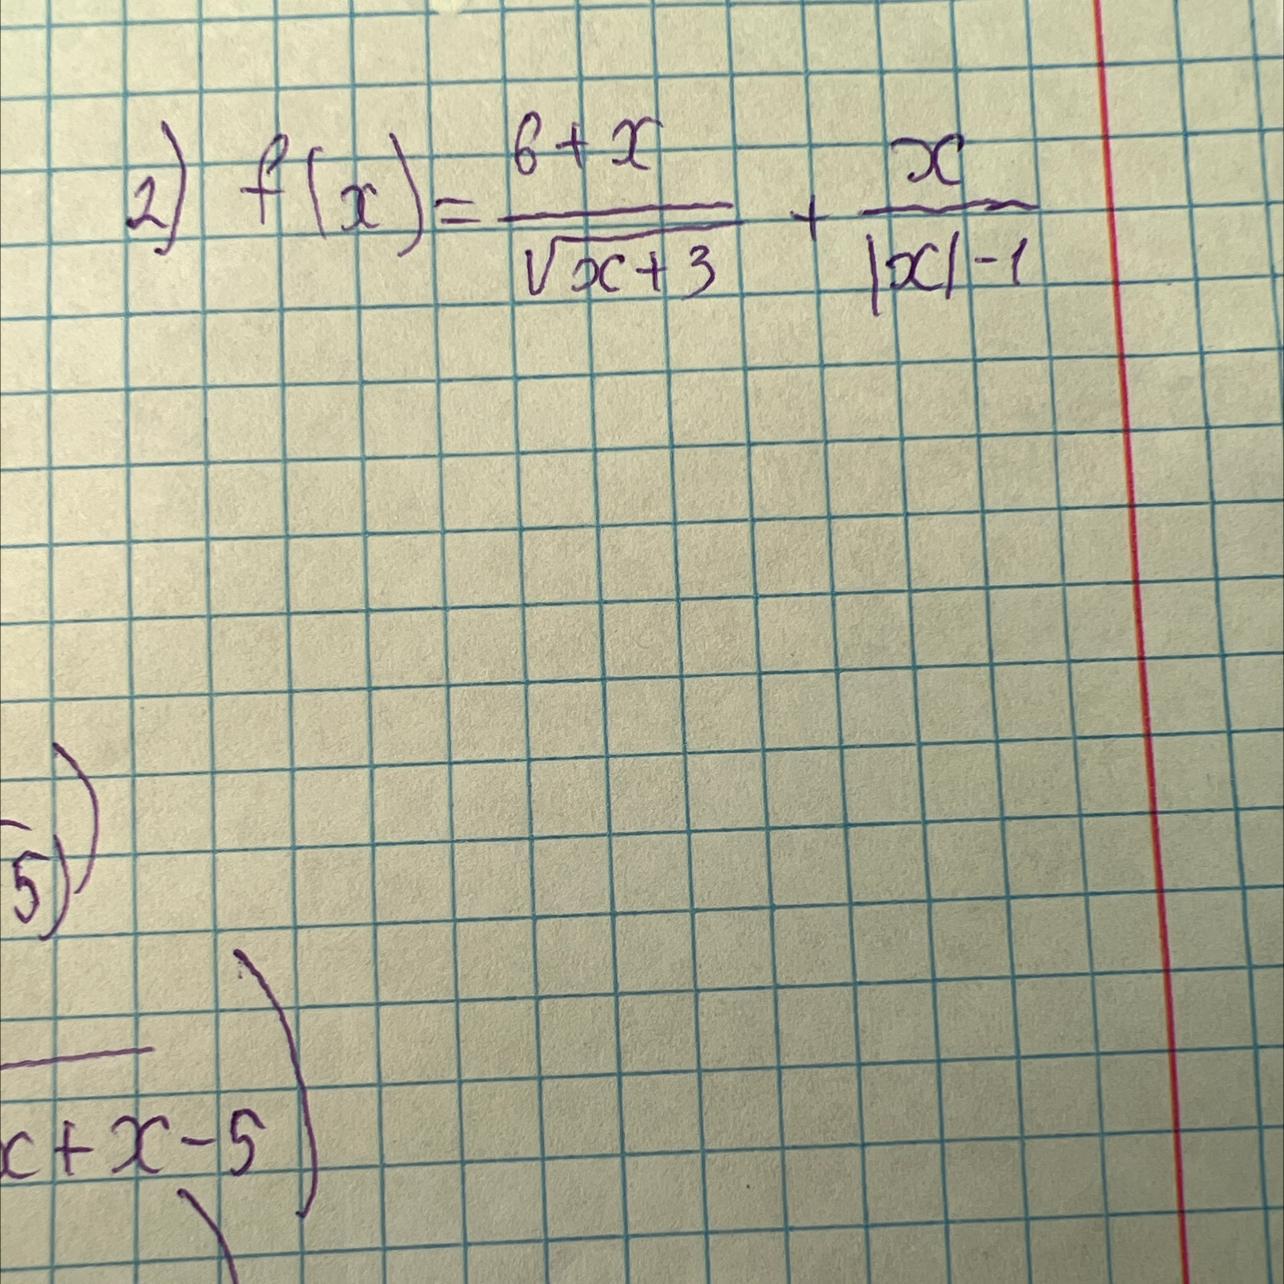 2) f(x) = (6 + x)/(√(x + 3)) + x/(|x| - 1)
5))
x + x - 5)
)